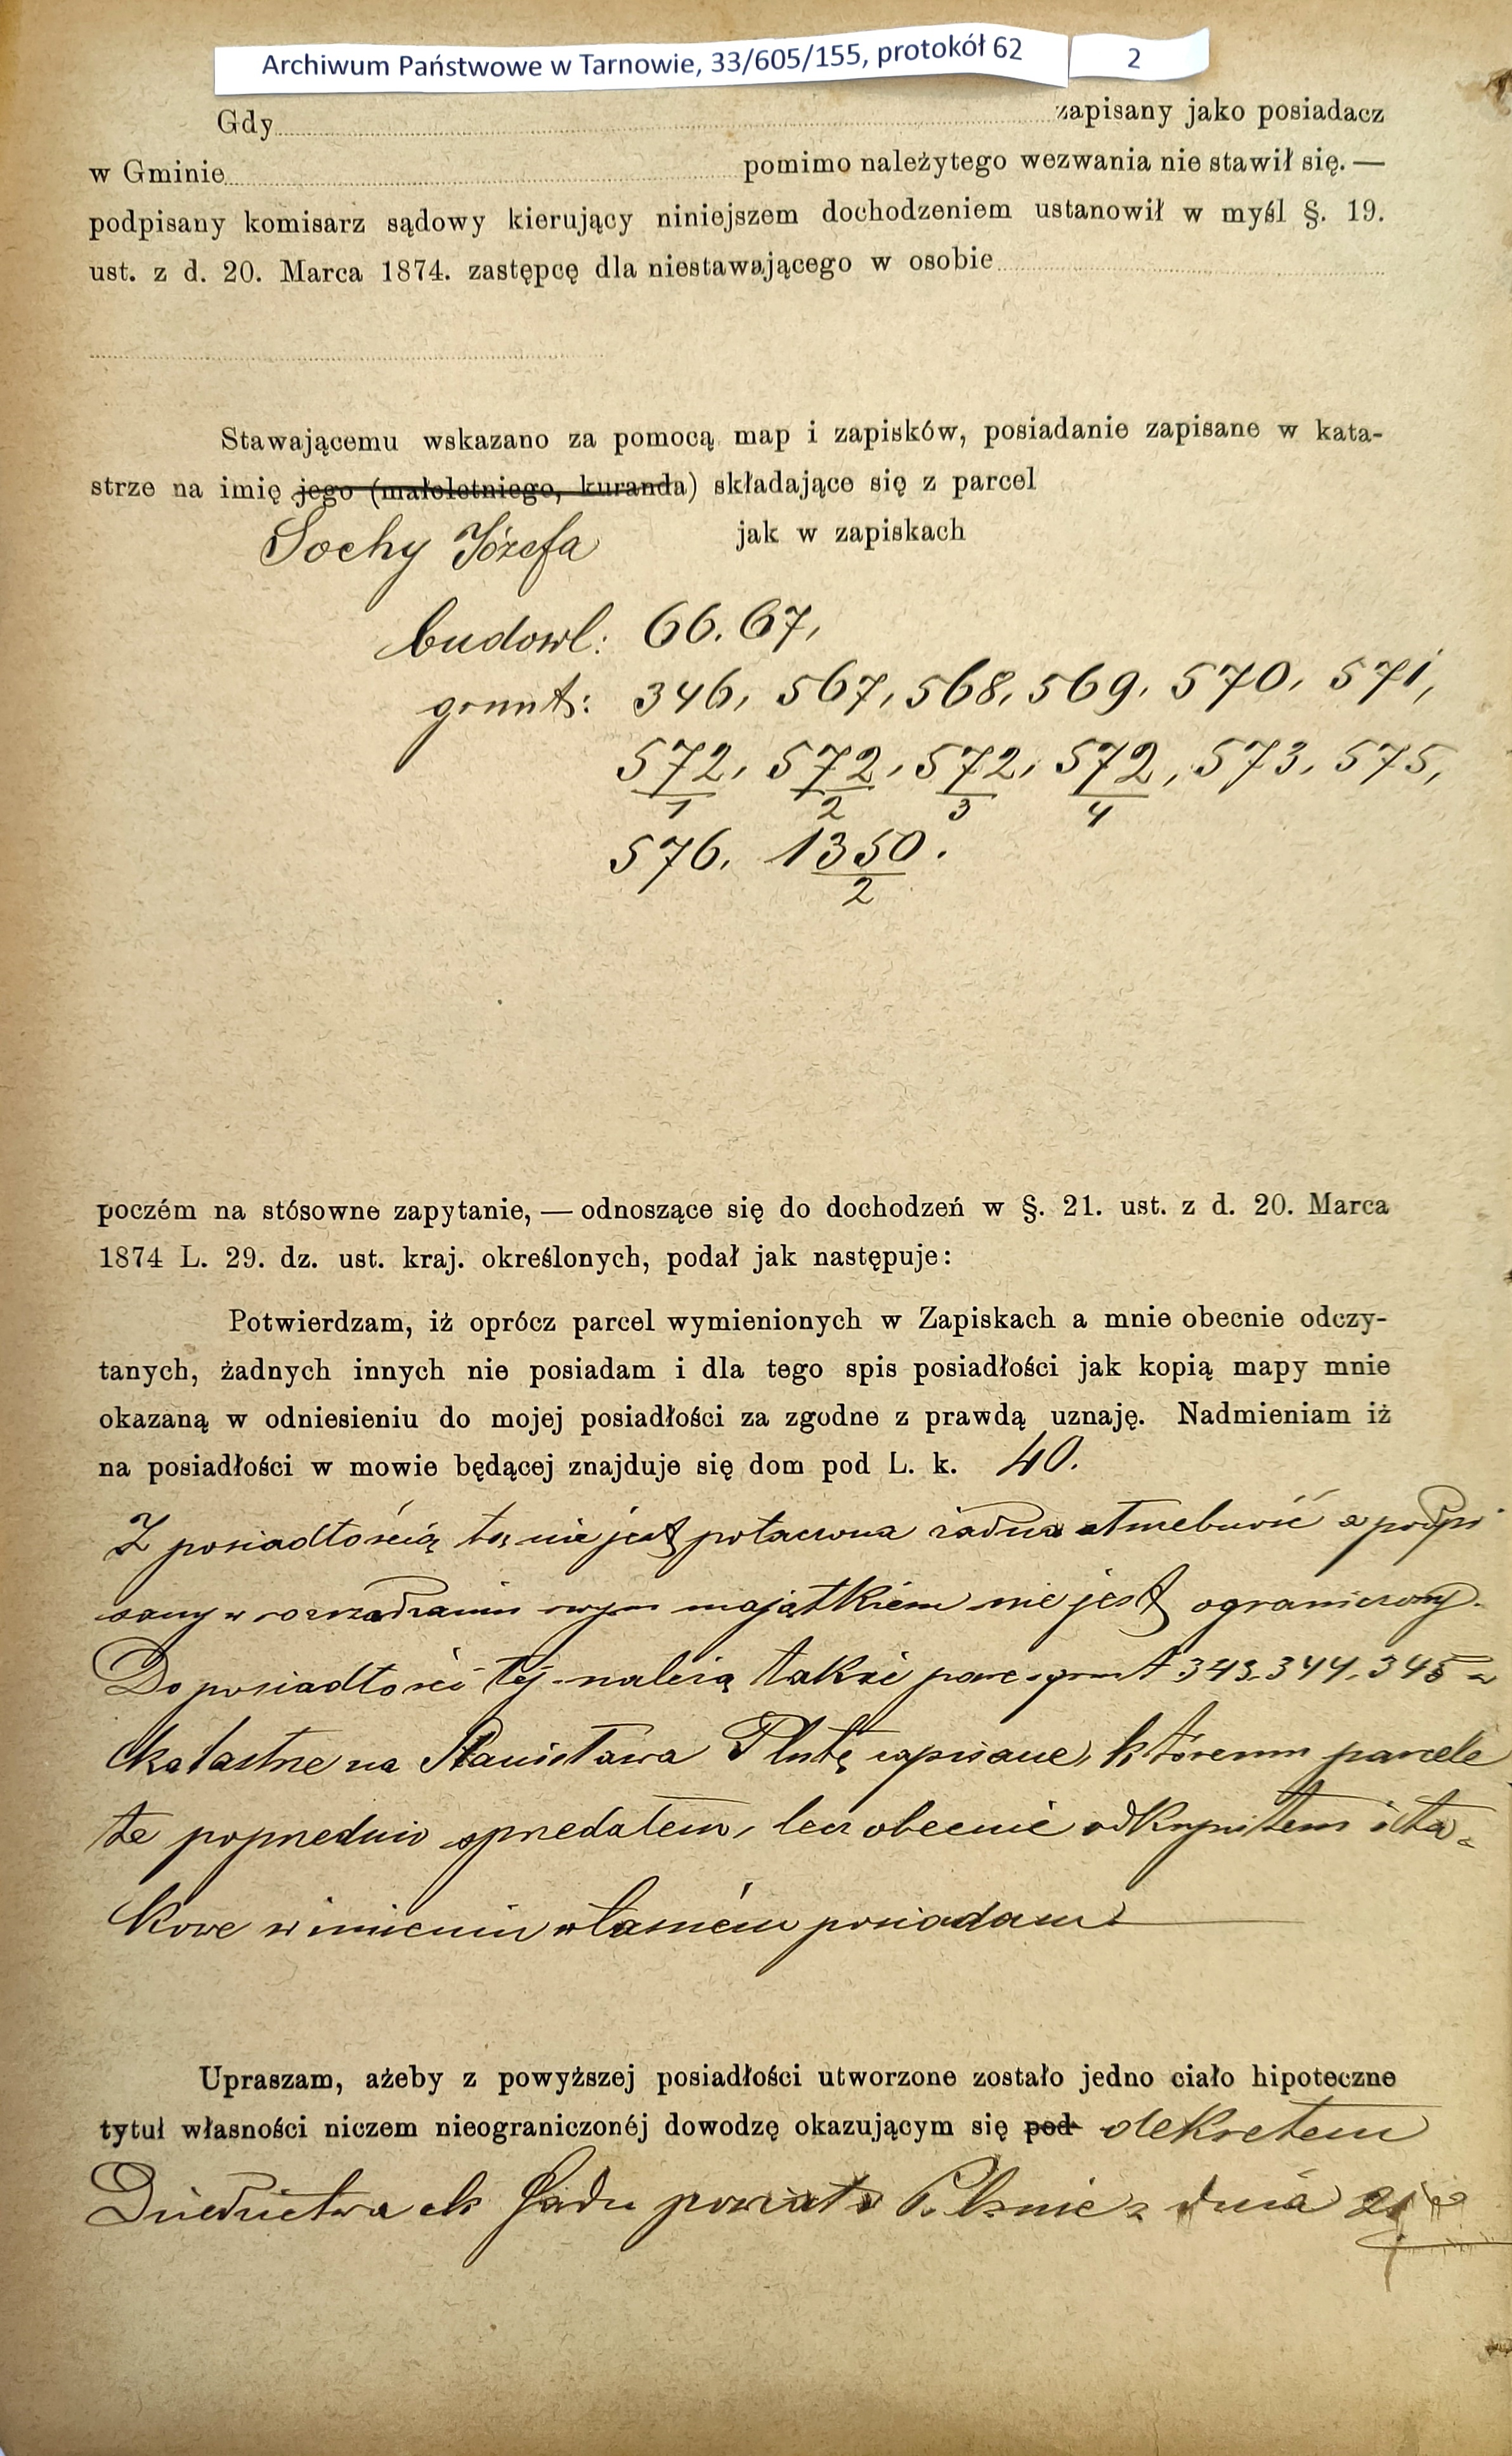 Archiwum Państwowe w Tarnowie, 33/605/155, protokół 62 2
Gdy zapisany jako posiadacz
w Gminie pomimo należytego wezwania nie stawił się. —
podpisany komisarz sądowy kierujący niniejszem dochodzeniem ustanowił w myśl §. 19.
ust. z d. 20. Marca 1874. zastępcę dla niestawającego w osobie
Stawającemu wskazano za pomocą map i zapisków, posiadanie zapisane w kata-
strze na imię jego (małoletniego, kuranda) składające się z parcel
Sochy Józefa jak w zapiskach
budowl: 66. 67,
grunt: 346, 567, 568, 569, 570, 571,
572/1, 572/2, 572/3, 572/4, 573, 575,
576, 1350/2.
poczém na stósowne zapytanie, — odnoszące się do dochodzeń w §. 21. ust. z d. 20. Marca
1874 L. 29. dz. ust. kraj. określonych, podał jak następuje:
Potwierdzam, iż oprócz parcel wymienionych w Zapiskach a mnie obecnie odczy-
tanych, żadnych innych nie posiadam i dla tego spis posiadłości jak kopią mapy mnie
okazaną w odniesieniu do mojej posiadłości za zgodne z prawdą uznaję. Nadmieniam iż
na posiadłości w mowie będącej znajduje się dom pod L. k. 40.
Z posiadłością tą nie jest połączona żadna służebność a podpi
sany w rozrządzaniu swym majątkiem nie jest ograniczony.
Do posiadłości tej należą także parc. grunt 343. 344. 345 w
katastrze na Stanisława Plutę zapisane, któremu parcele
te poprzednio sprzedałem, lecz obecnie odkupiłem i ta-
kowe w imieniu własném posiadam
Upraszam, ażeby z powyższej posiadłości utworzone zostało jedno ciało hipoteczne
tytuł własności niczem nieograniczonéj dowodzę okazującym się pod dekretem
Dziedzictwa ck Sądu powiat w Pilznie z dnia